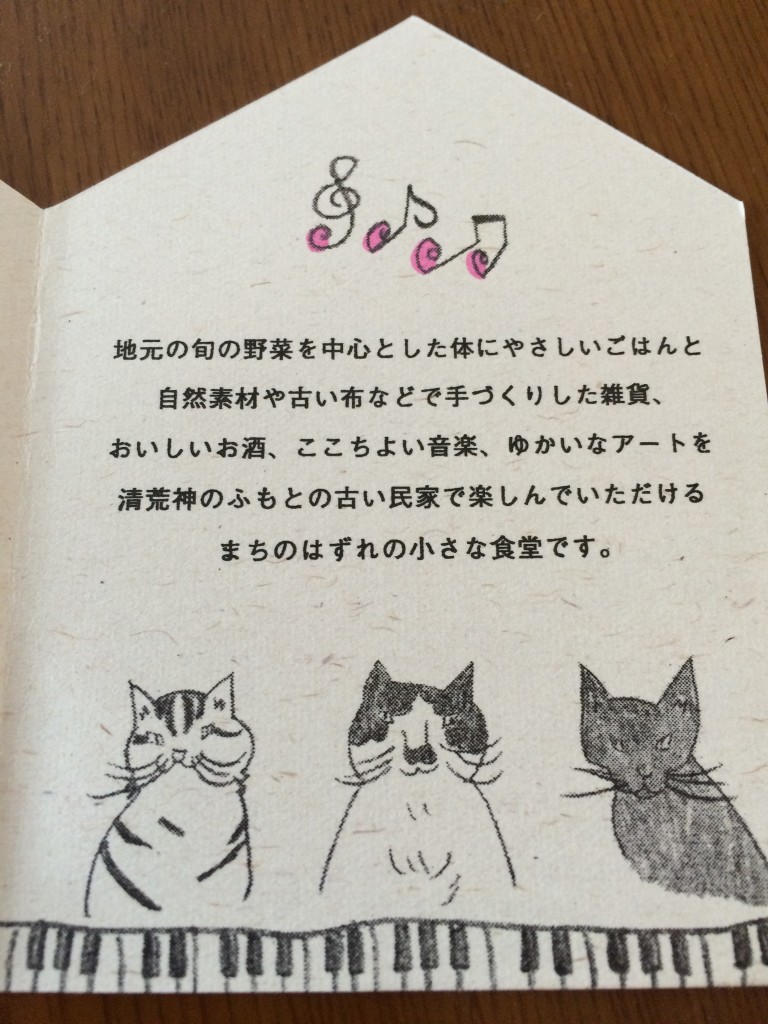 地元の旬の野菜を中心とした体にやさしいごはんと
自然素材や古い布などで手づくりした雑貨、
おいしいお酒、ここちよい音楽、ゆかいなアートを
清荒神のふもとの古い民家で楽しんでいただける
まちのはずれの小さな食堂です。